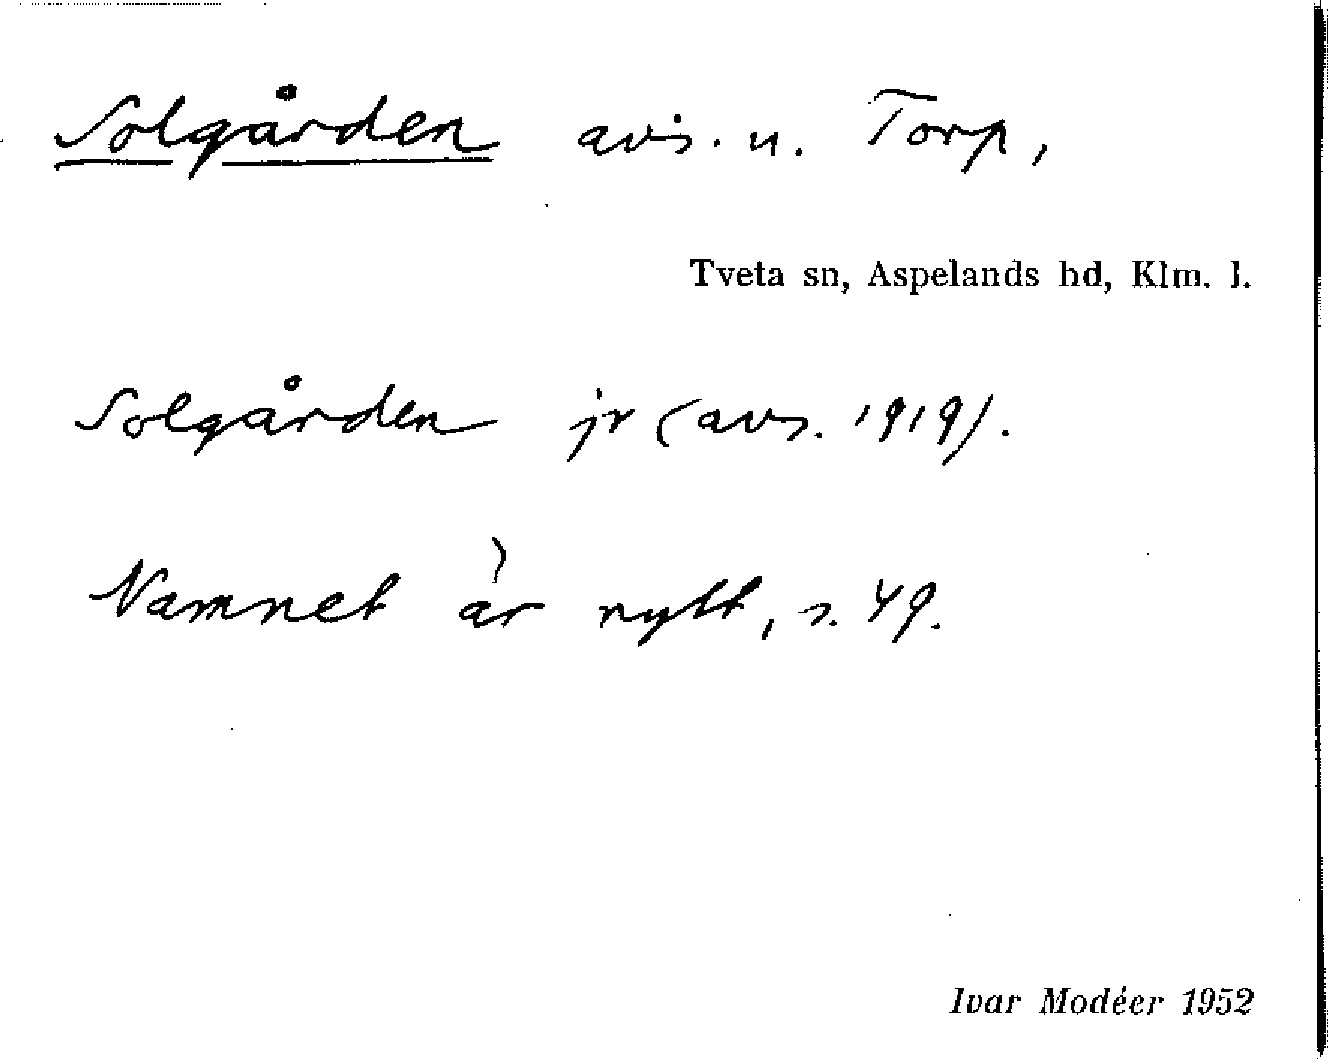 Solgården avs. u. Torp,
Tveta sn, Aspelands hd, Klm. l.
Solgården jr (avs. 1919).
Namnet är nytt, s. 49.
Ivar Modéer 1952